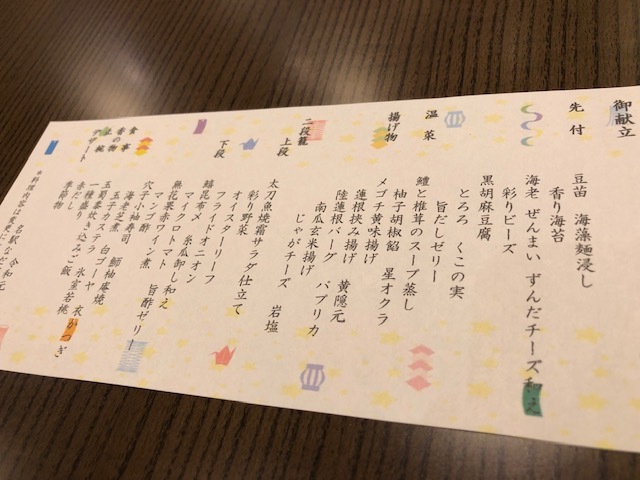 御献立
先付
豆苗　海藻麺浸し
香り海苔
海老　ぜんまい　ずんだチーズ和え
彩りビーズ
黒胡麻豆腐
とろろ　くこの実
旨だしゼリー
温菜
鱧と椎茸のスープ蒸し
柚子胡椒餡　星オクラ
揚げ物
メゴチ黄味揚げ
蓮根挟み揚げ　黄隠元
陸蓮根バーグ　パプリカ
南瓜玄米揚げ
じゃがチーズ　岩塩
二段籠
上段
太刀魚焼霜サラダ仕立て
彩り野菜
オイスターリーフ
フライドオニオン
下段
鱚昆布〆　糸瓜卸し和え
マイクロトマト
無花果赤ワイン煮　旨酢ゼリー
マンゴ酢
穴子小袖寿司
海老芝煮　鰤柚庵焼
玉子カステラ　白ゴーヤ
玉蜀黍
食事
一種炊き込みご飯
香の物
止椀
赤だし
デザート
季節物